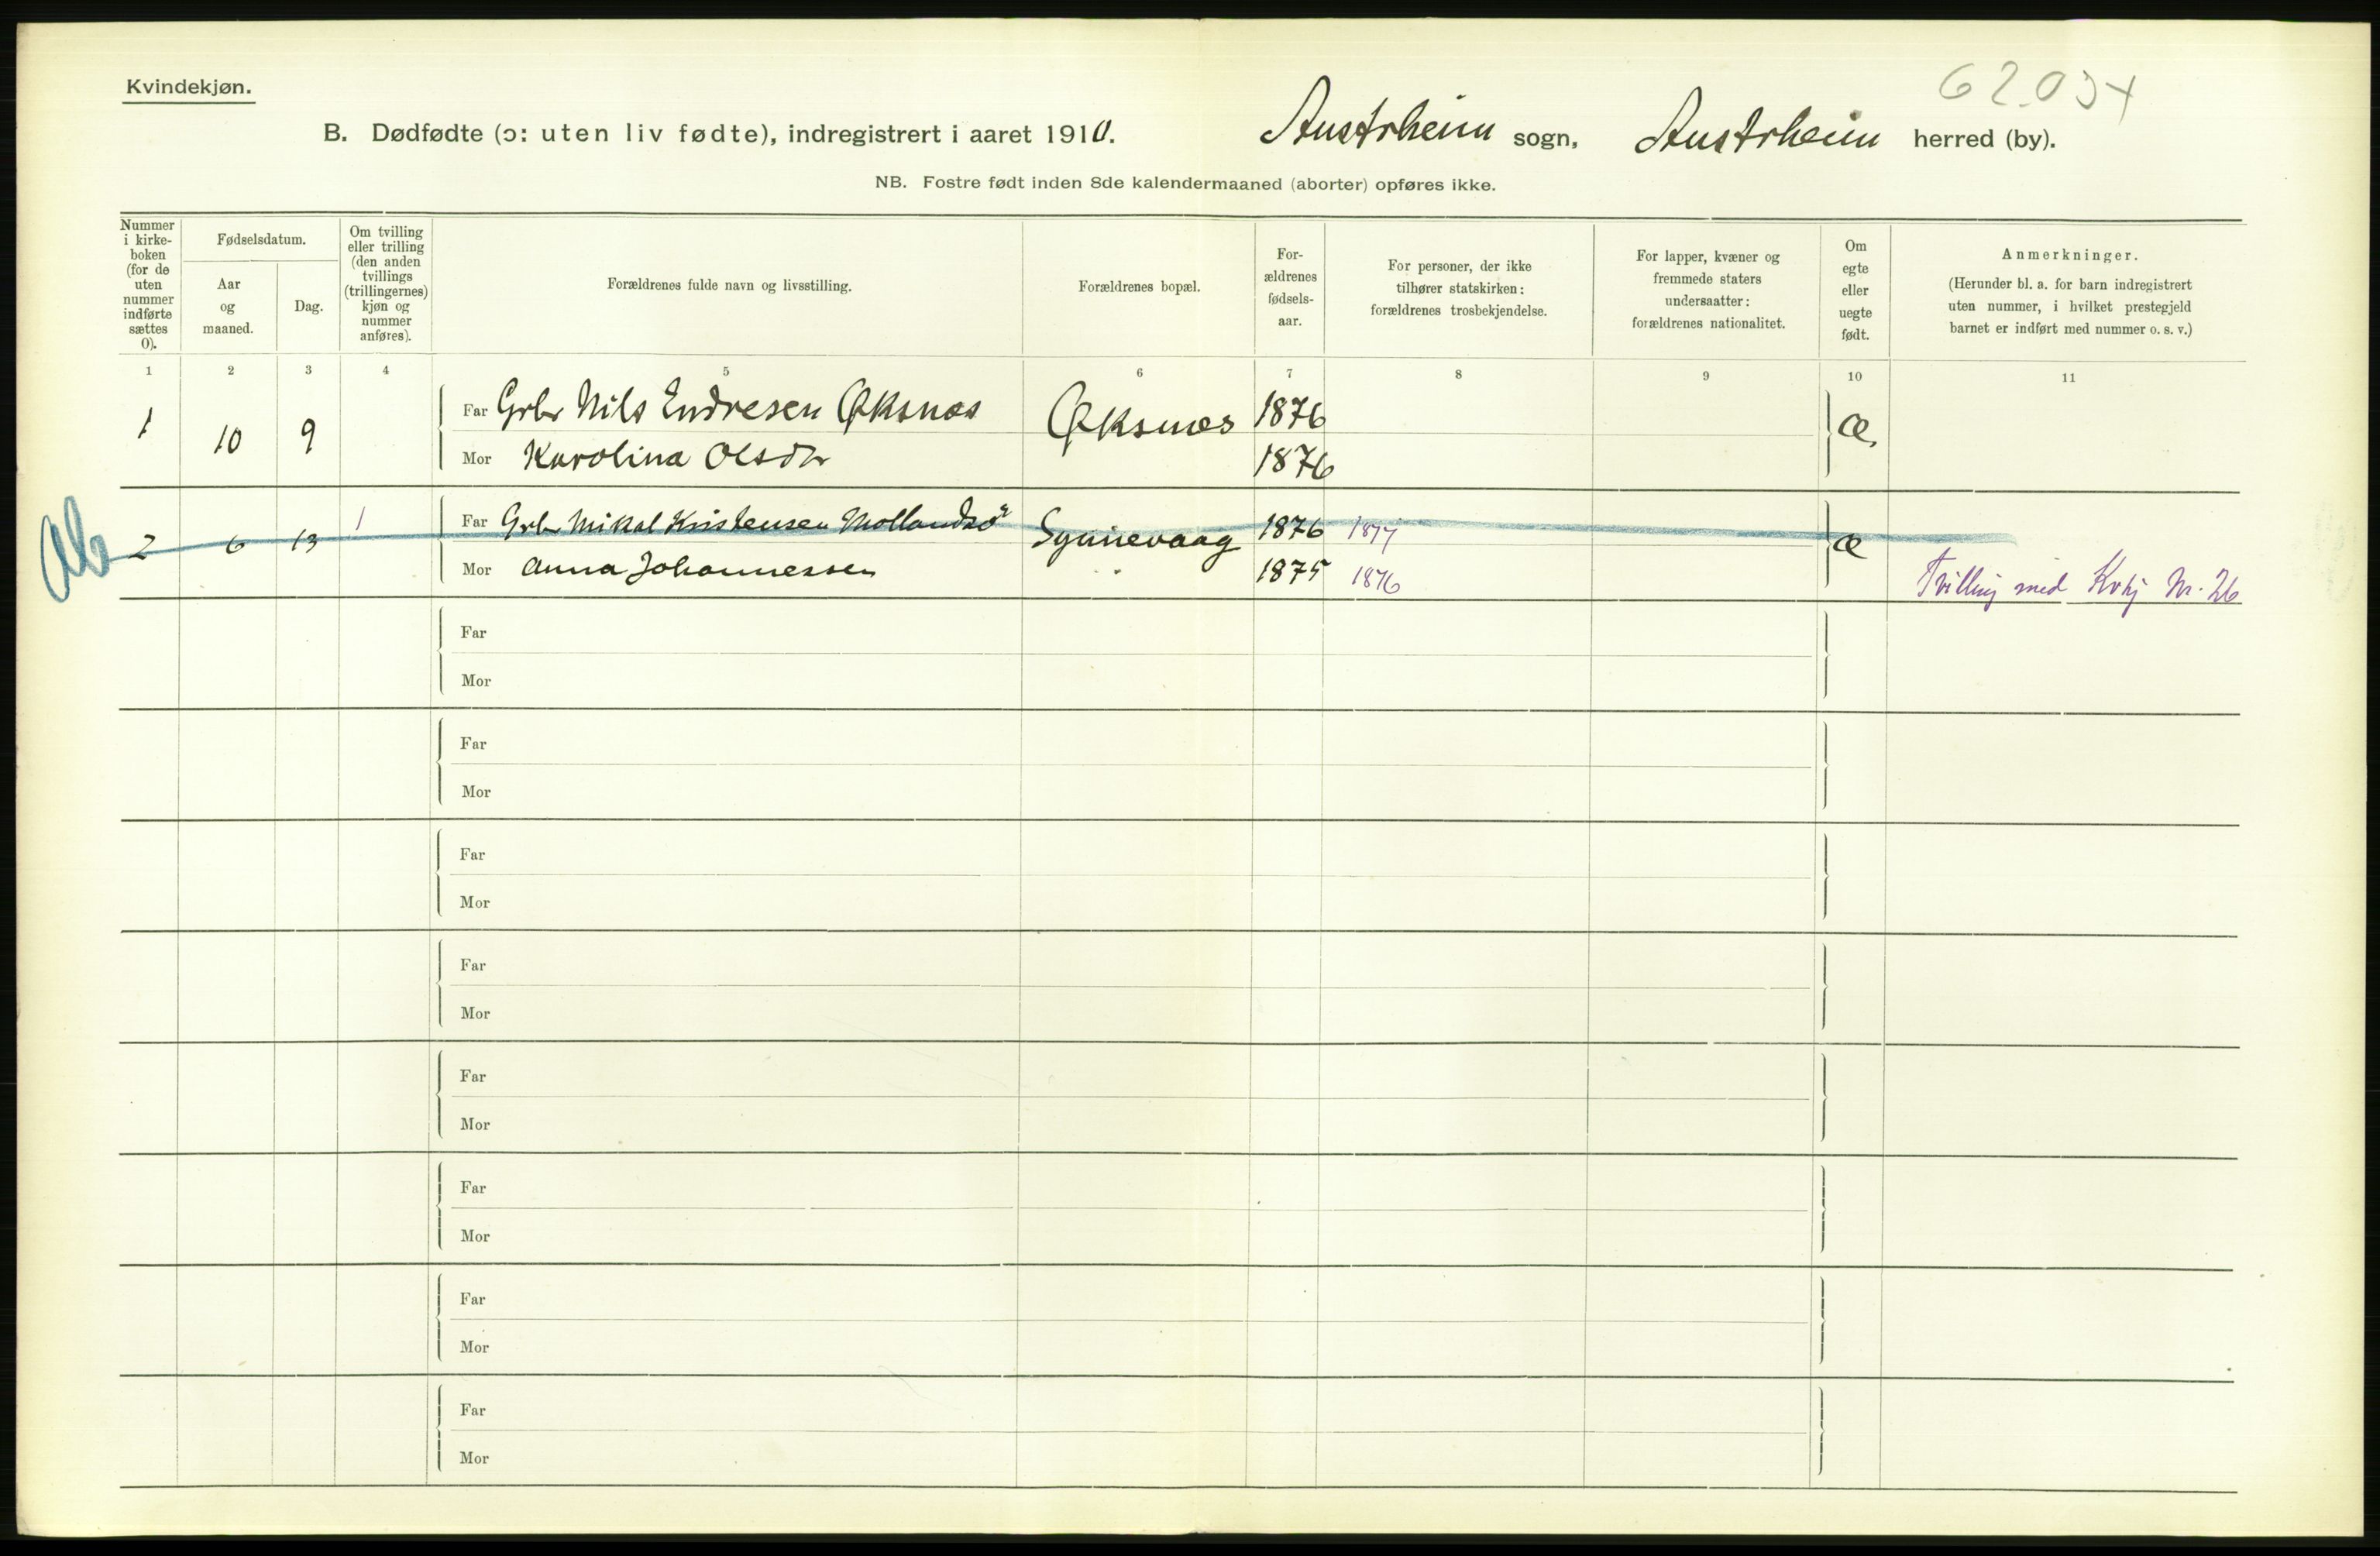 Kvindekjøn.
62.034
B. Dødfødte (ɔ: uten liv fødte), indregistrert i aaret 1910. Austrheim sogn, Austrheim herred (by).
NB. Fostre født inden 8de kalendermaaned (aborter) opføres ikke.
Nummer
i kirke-
boken
(for de
uten
nummer
indførte
sættes
0).
Fødselsdatum.
Aar
og
maaned.
Dag.
Om tvilling
eller trilling
(den anden
tvillings
(trillingernes)
kjøn og
nummer
anføres).
Forældrenes fulde navn og livsstilling.
Forældrenes bopæl.
For-
ældrenes
fødsels-
aar.
For personer, der ikke
tilhører statskirken:
forældrenes trosbekjendelse.
For lapper, kvæner og
fremmede staters
undersaatter:
forældrenes nationalitet.
Om
egte
eller
uegte
født.
Anmerkninger.
(Herunder bl. a. for barn indregistrert
uten nummer, i hvilket prestegjeld
barnet er indført med nummer o. s. v.)
1 2 3 4 5 6 7 8 9 10 11
1 10 9 Far Grbr Nils Endresen Øksnes Øksnes 1876 Æ.
Mor Karolina Olsdr 1876
2 6 13 1 Far Grbr Mikal Kristensen Synnevaag 1876 1877 Æ
Mor Anna Johannessen 1875 1876 Tvilling med Kvkj Nr. 26
Far
Mor
Far
Mor
Far
Mor
Far
Mor
Far
Mor
Far
Mor
Far
Mor
Far
Mor